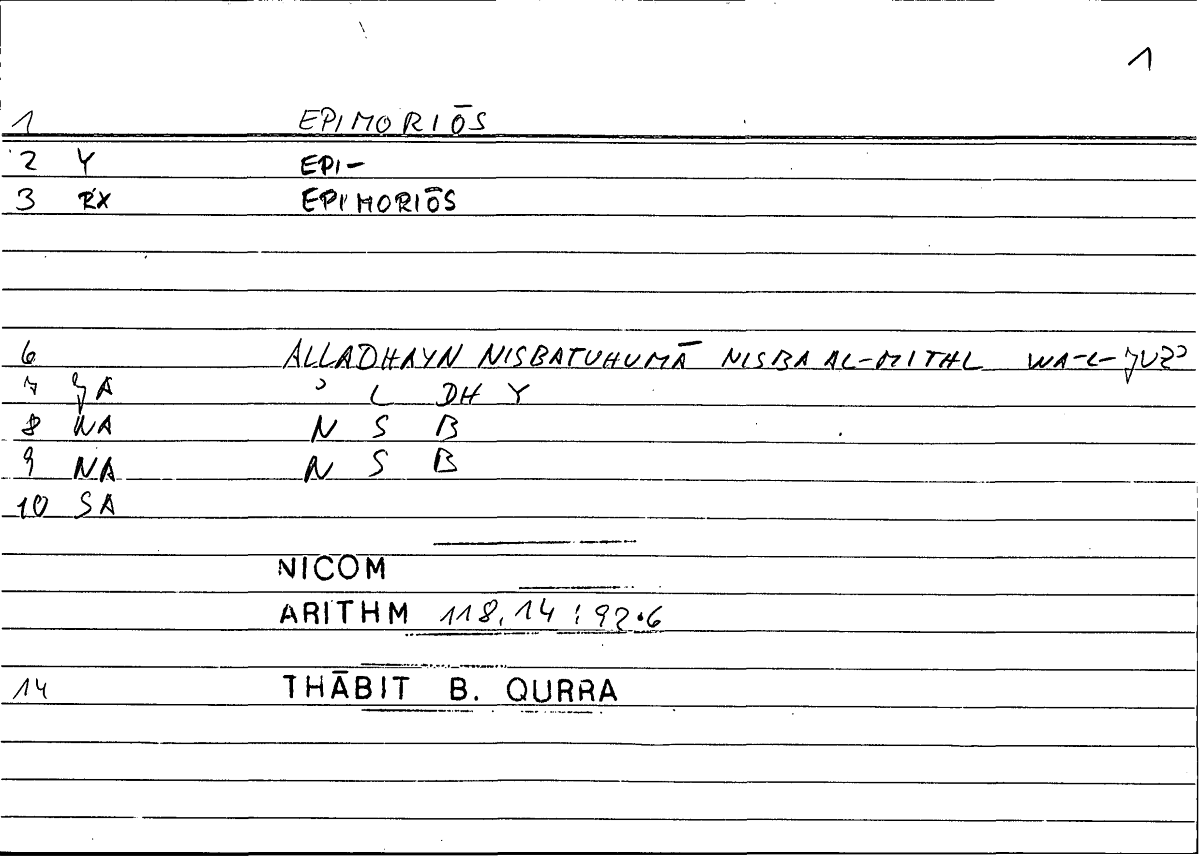 1
1 EPIMORIŌS
2 Y EPI-
3 RX EPIMORIŌS
6 ALLADHAYN NISBATUHUMĀ NISBA AL-MITHL WA-L-JUZʾ
7 JA ʾ L DH Y
8 NA N S B
9 NA N S B
10 SA
NICOM
ARITHM 118,14 : 92.6
14 THĀBIT B. QURRA